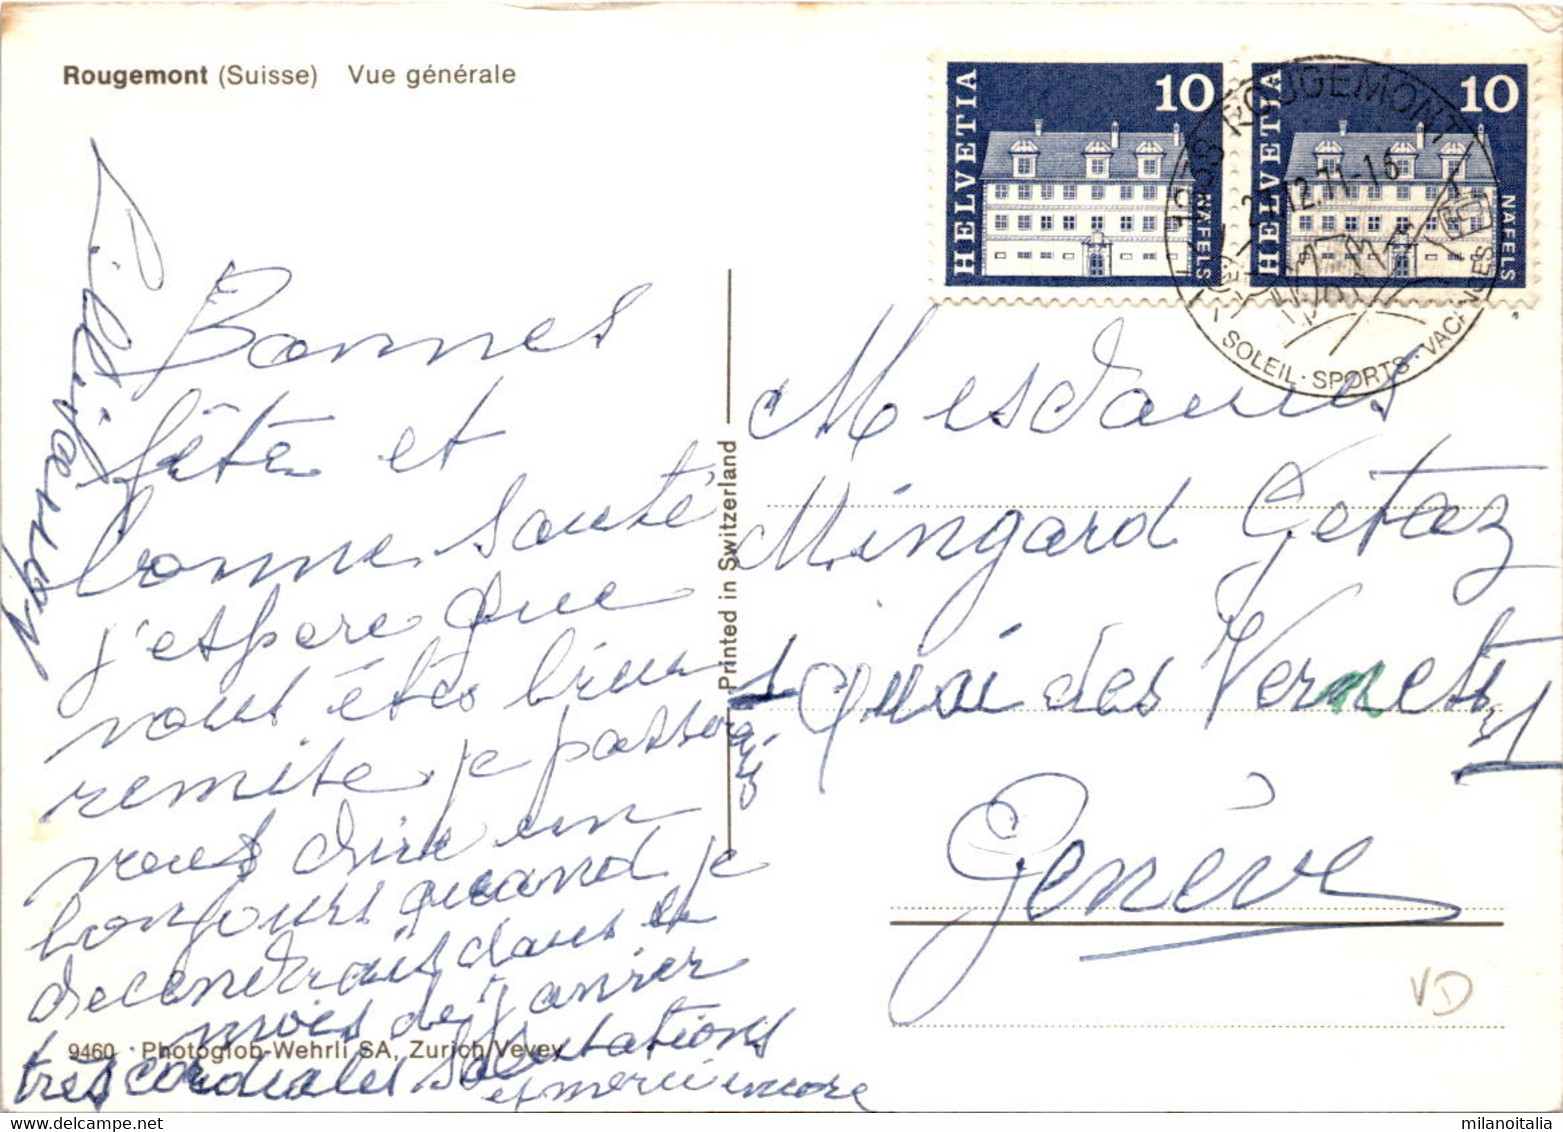 Rougemont (Suisse) Vue générale
HELVETIA 10 NÄFELS
HELVETIA 10 NÄFELS
ROUGEMONT
12.71-16
SOLEIL · SPORTS · VACANCES
Bonnes
fête et
bonne santé
j'espère que
vous êtes bien
remise je passer
vous dire un
bonjours quand je
decendrais dans et
mois de janvier
très cordiales salutations
et merci encore
Mesdames
Mingard Getaz
1 quai des Vernets
1
Genève
Printed in Switzerland
9460 · Photoglob-Wehrli SA, Zurich/Vevey
VD
milanoitalia